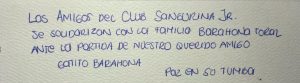 Los Amigos del Club Sangurina Jr.
Se solidarizan con la familia Barahona Toral
ante la partida de nuestro querido amigo
Gatito Barahona
Paz en su tumba